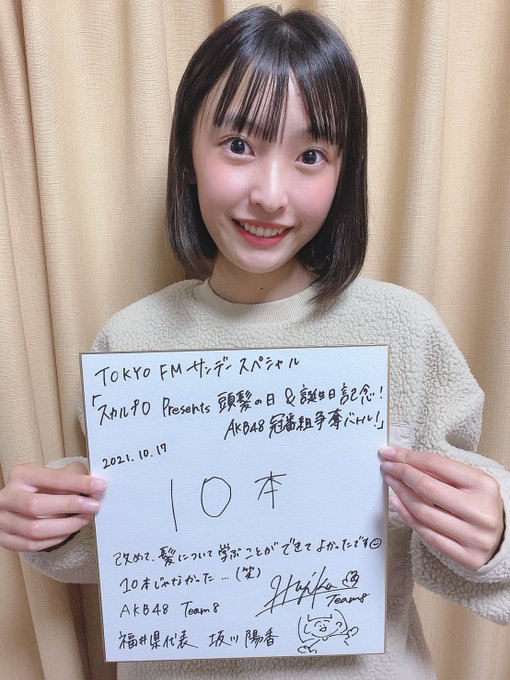 TOKYO FM サンデースペシャル
「スカルプD Presents 頭髪の日 & 誕生日記念!
AKB48 冠番組争奪バトル!」
2021.10.17
10本
改めて、髪について学ぶことができてよかったです
10本じゃなかった…(笑)
AKB48 Team8
Team8
福井県代表 坂川 陽香